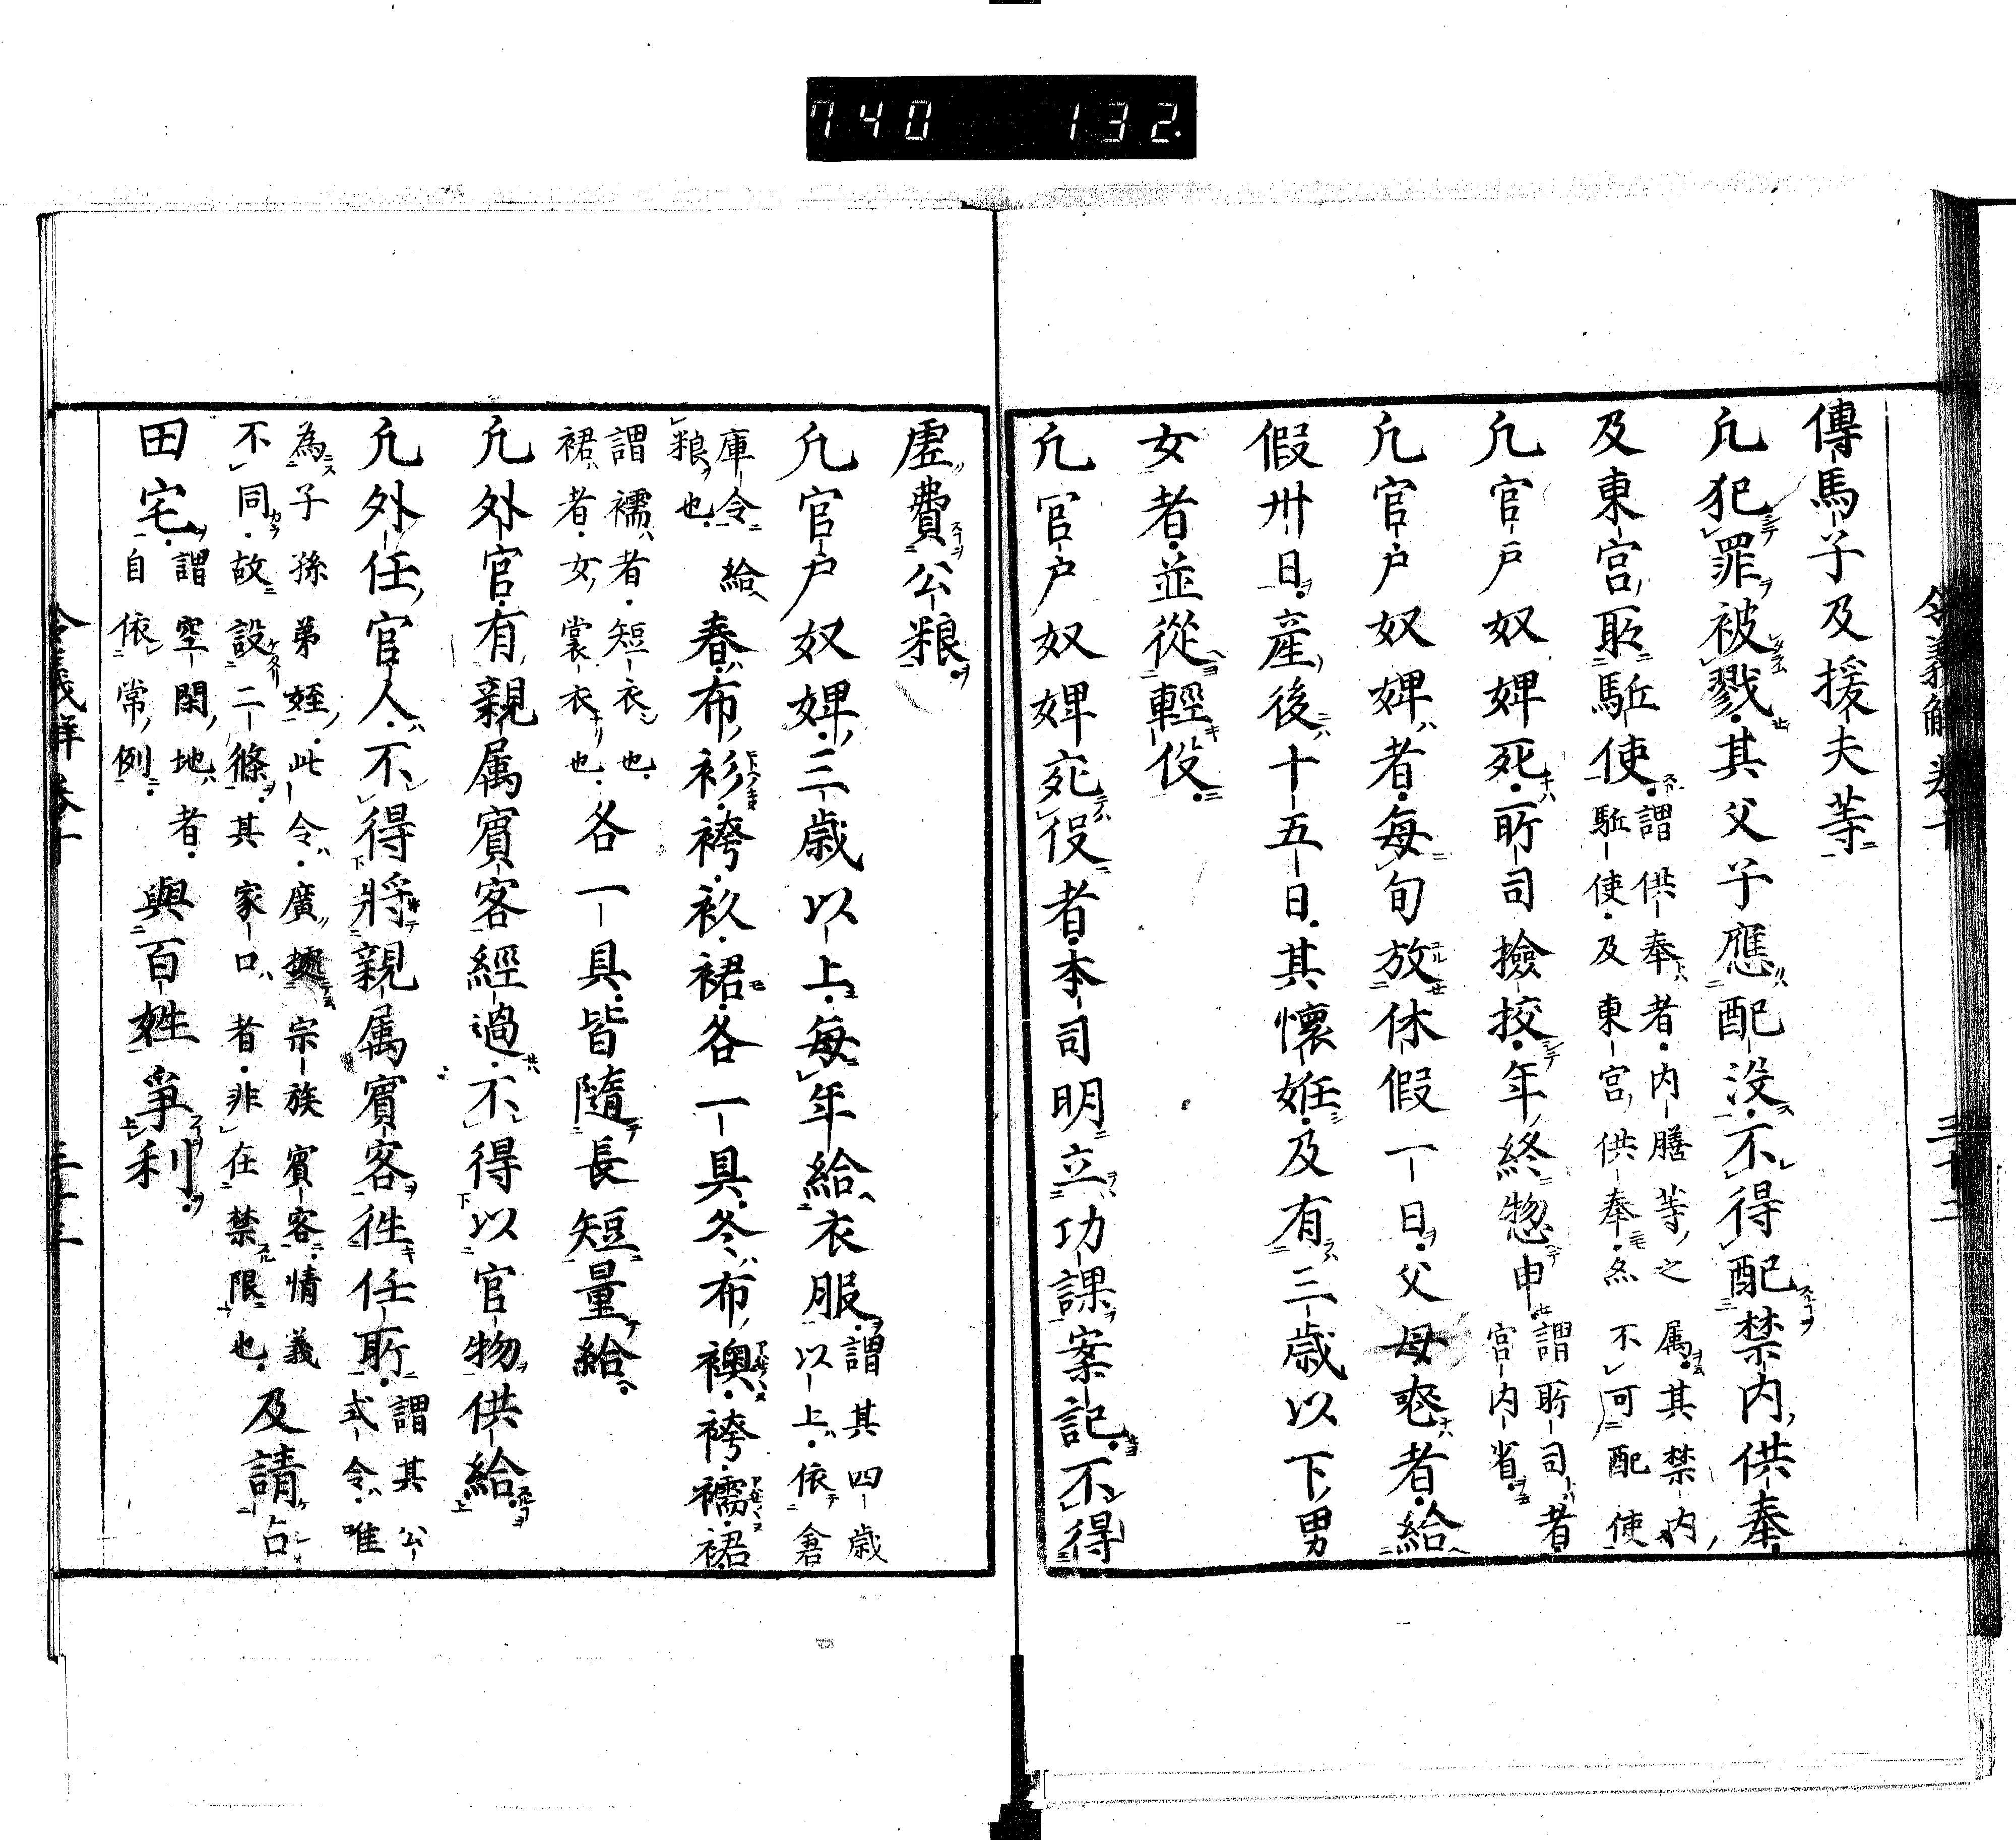 740 132.
傳馬子及援夫等
凢犯罪被戮其父子應配没不得配禁内供奉
及東宮所駈使謂供奉者内膳等之属其禁内
駈使及東宮供奉亦不可配使
凢官戸奴婢死所司撿挍年終惣申謂所司者
宮内省
凢官戸奴婢者每旬放休假一日父母喪者給
假卅日産後十五日其懷妊及有三歳以下男
女者並從輕役
凢官戸奴婢宛役者本司明立功課案記不得
虚費公粮
凢官戸奴婢三歳以上每年給衣服謂其四歳
以上依倉
庫令給
粮也春布衫袴衫裙各一具冬布襖袴襦裙
謂襦者短衣也
裙者女裳衣也各一具皆隨長短量給
凢外官有親属賓客經過不得以官物供給
凢外任官人不得將親属賓客徃任所謂其公
式令唯
為子孫弟姪此令廣據宗族賓客情義
不同故設二條其家口者非在禁限也及請占
田宅謂空閑地者
自依常例與百姓爭利